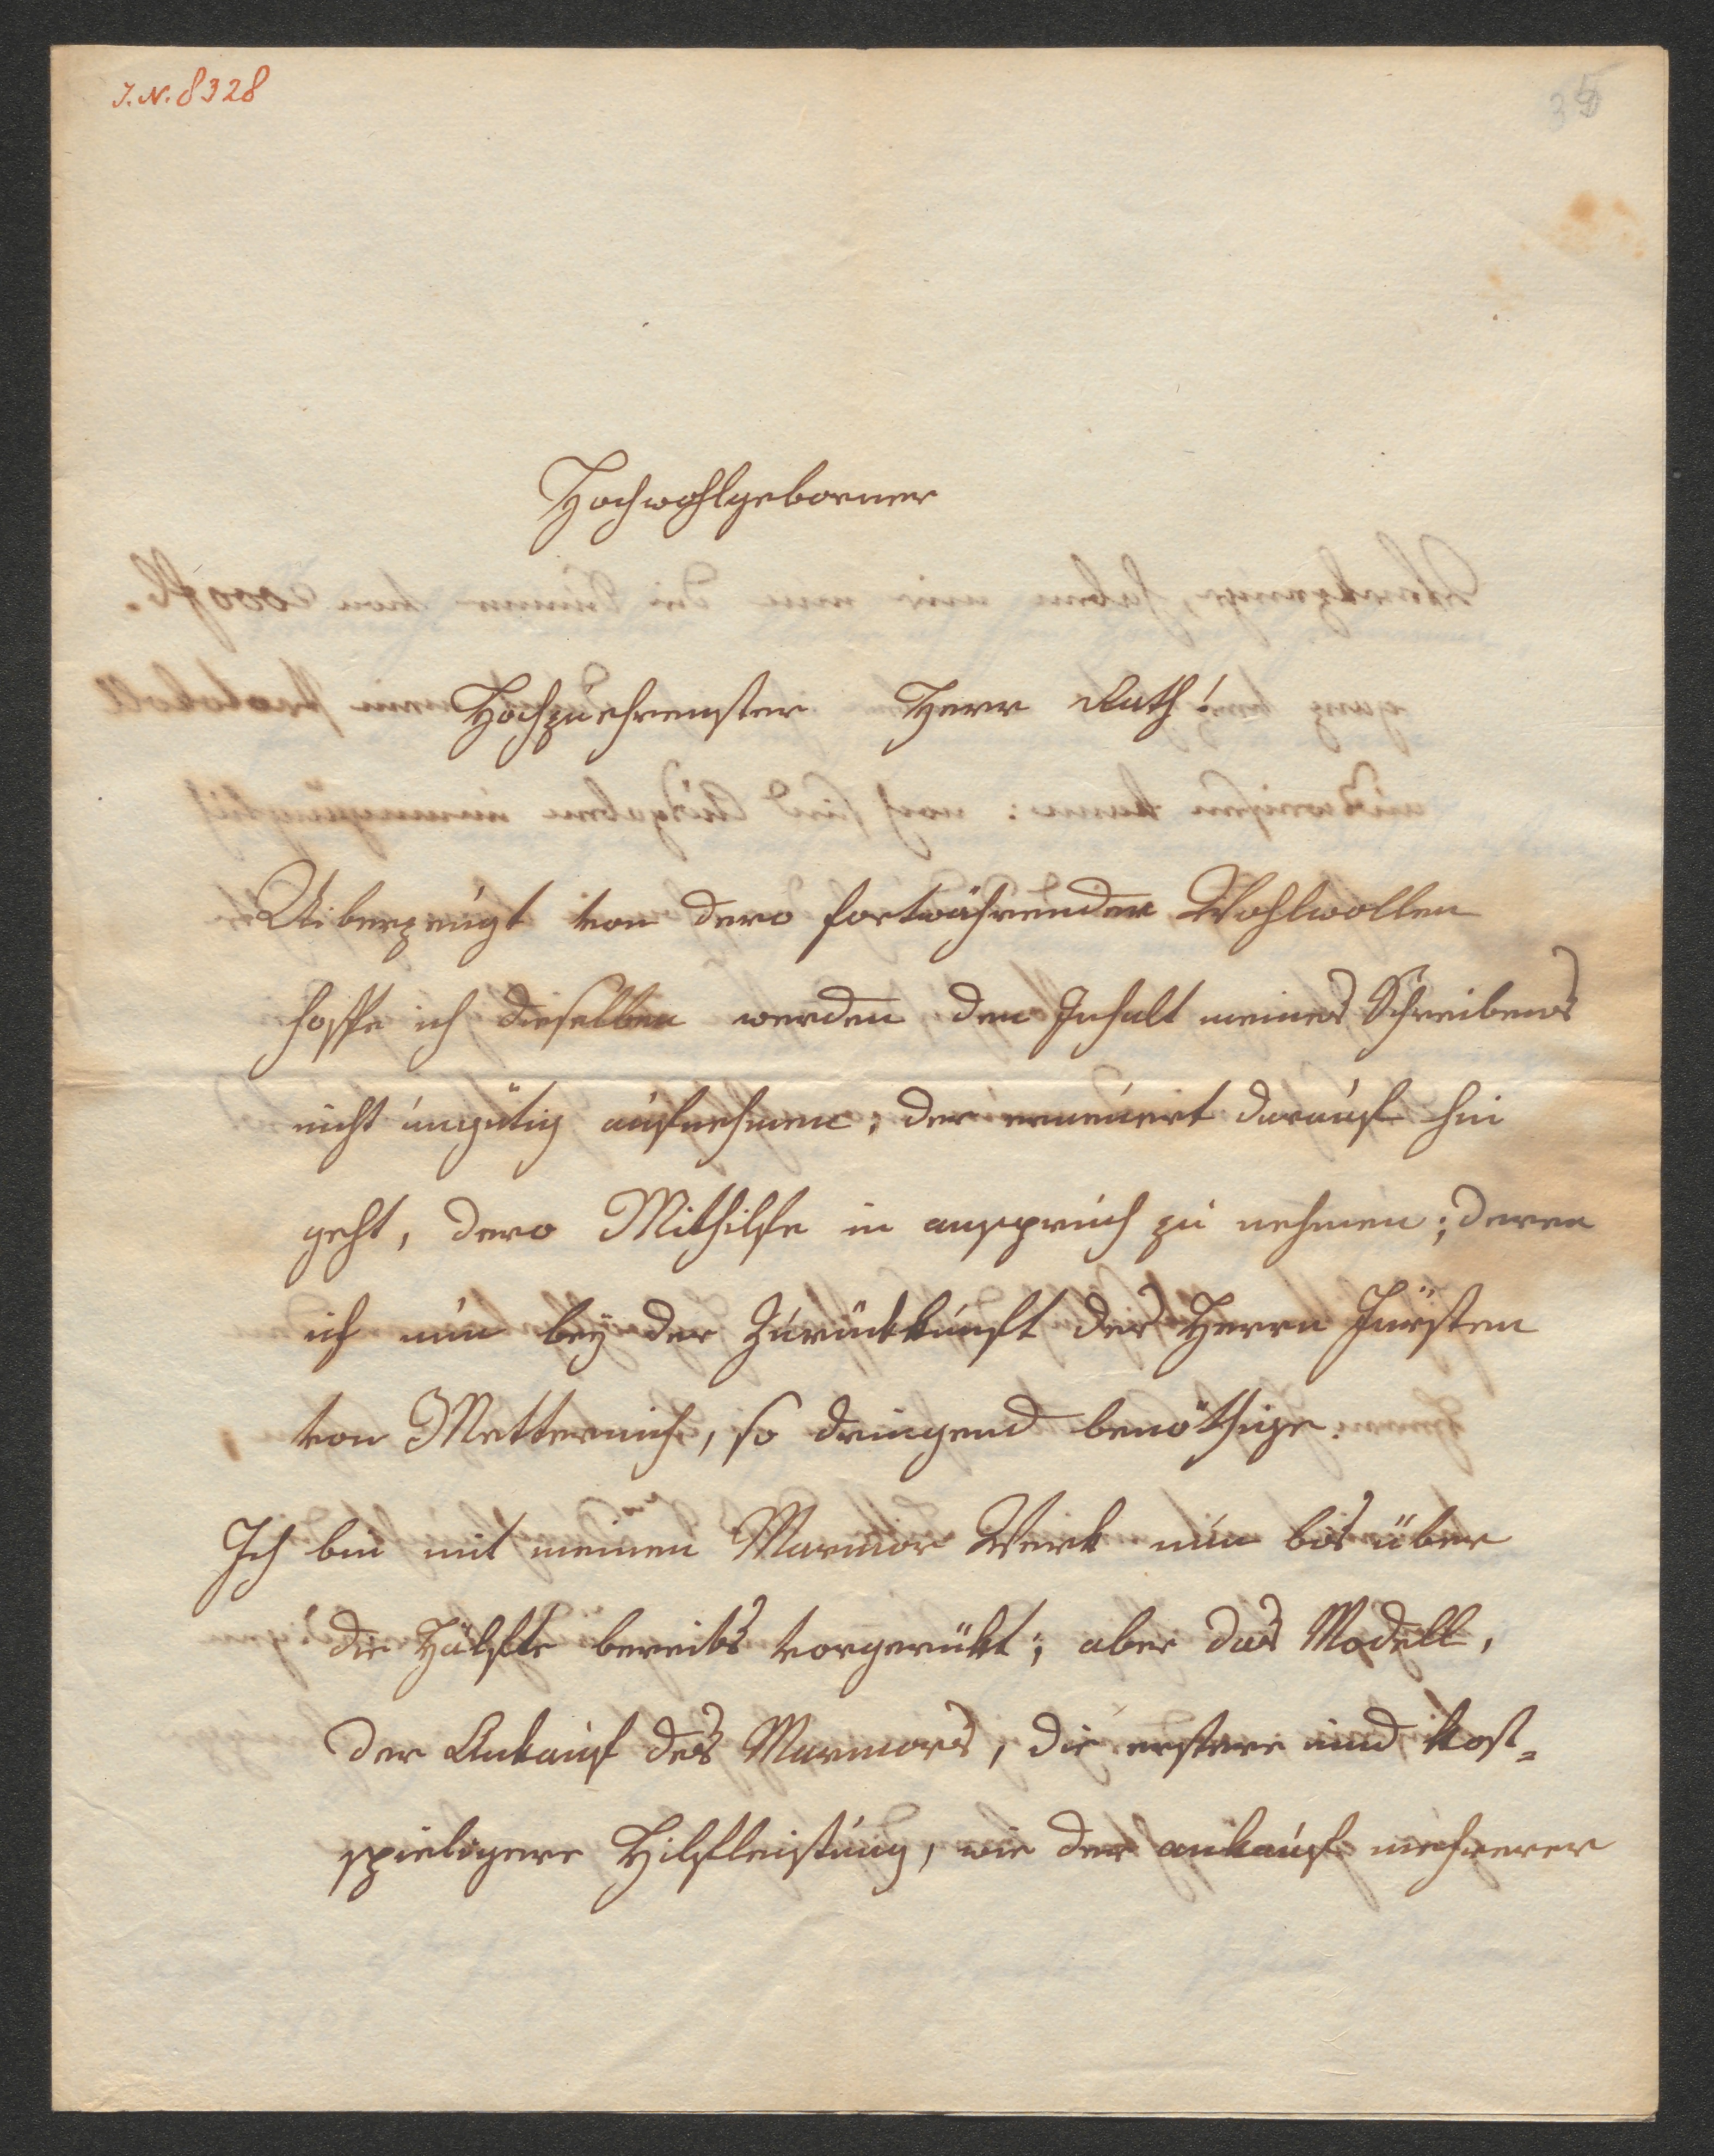 I. N. 8328
35
Hochwohlgeborner
Hochzuehrenster Herr Rath!
Uiberzeugt von dero fortwährenden Wohlwollen
hoffe ich dieselben werden den Inhalt meines Schreibens
nicht ungütig aufnehmen; der erneuert darauf hin
geht, dero Mithilfe in anspruch zu nehmen; deren
ich nun bey der Zurückkunft des Herrn Fürsten
von Metternich, so dringend benöthige.
Ich bin mit meinen Marmor Werk nun bis über
die Hälfte bereits vorgerükt; aber das Modell,
der Ankauf des Marmors, die erstere und kost=
spieligere Hilfleistung, wie der ankauf mehrerer